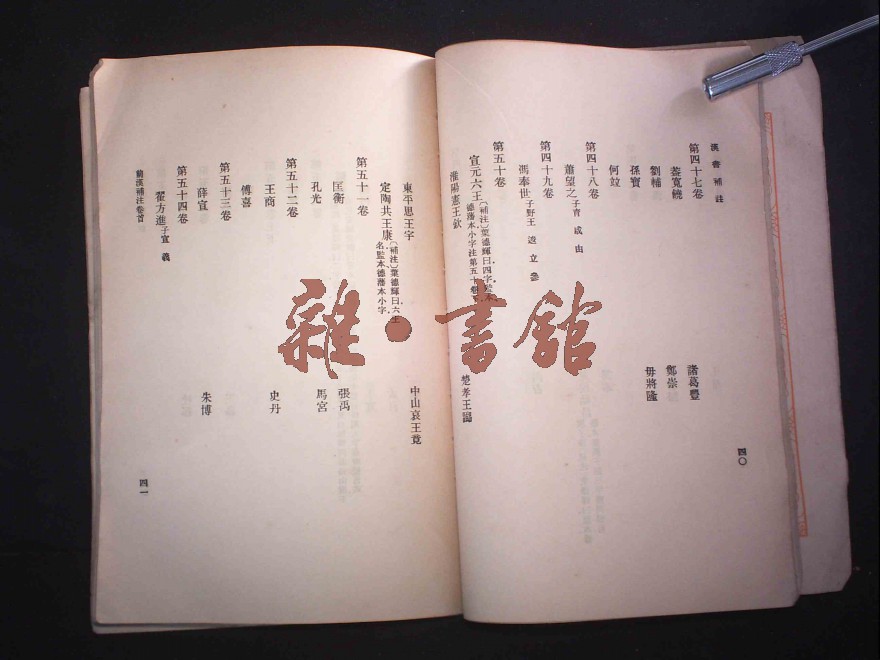 漢書補注
第四十七卷
蓋寬饒
諸葛豐
劉輔
鄭崇
孫寶
毋將隆
何竝
第四十八卷
蕭望之子育 咸 由
第四十九卷
馮奉世子野王 逡 立 參
第五十卷
宣元六王〔補注〕葉德輝曰四字監本
德藩本小字注第五十卷下
淮陽憲王欽
楚孝王囂
四〇
東平思王宇
中山哀王竟
定陶共王康〔補注〕葉德輝曰六王
名監本德藩本小字
第五十一卷
匡衡
張禹
孔光
馬宮
第五十二卷
王商
史丹
傅喜
第五十三卷
薛宣
朱博
第五十四卷
翟方進子宣 義
前漢補注卷首
四一
雜·書館